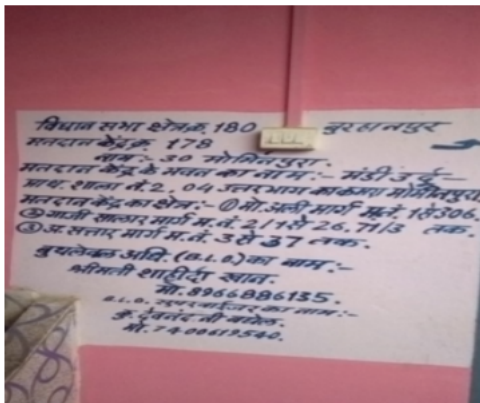 विधान सभा क्षेत्र क्र. 180 बुरहानपुर
मतदान केंद्र क्र. 178
नाम :- 30 मोमिनपुरा.
मतदान केंद्र के भवन का नाम :- मंडी उर्दू
माध. शाला नं. 2. 04 उत्तर भाग का कमरा मोमीनपुरा
मतदान केंद्र का क्षेत्र :- ① मो. अली मार्ग म.नं. 1 से 306.
② गाजी सालार मार्ग म.नं. 2/1 से 26. 71/3 तक.
③ अ. सत्तार मार्ग म.नं. 3 से 37 तक.
बुथलेवल अधि. (B.L.O.) का नाम :-
श्रीमती शाहीदा खान.
मो. 8966886135.
B.L.O. सुपरवाईजर का नाम :-
कु. देवनंदनी बामेल.
मो. 7400619540.